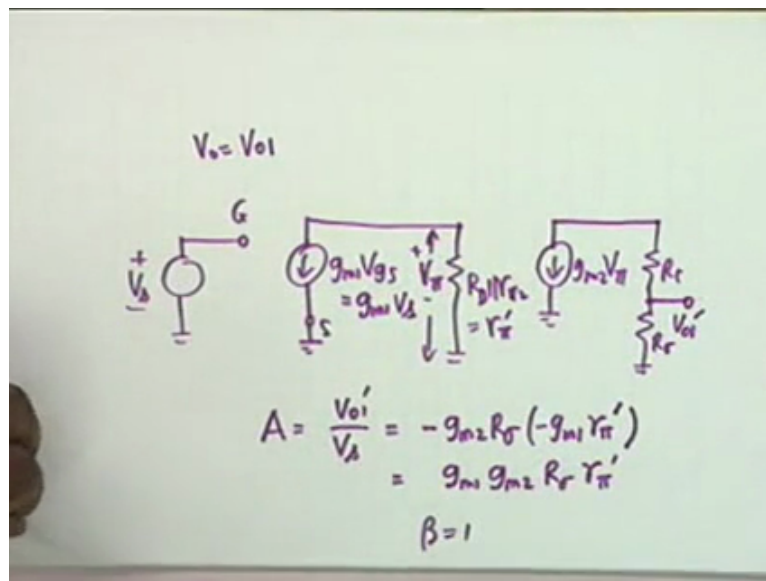 Vo = Vo1
G
+
Vs
-
gm1 Vgs
= gm1 Vs
S
+
Vπ
-
RD||rπ2
= rπ'
gm2 Vπ
Vo1'
A = Vo1'/Vs = - gm2 Rσ (-gm1 rπ')
= gm1 gm2 Rσ rπ'
β = 1